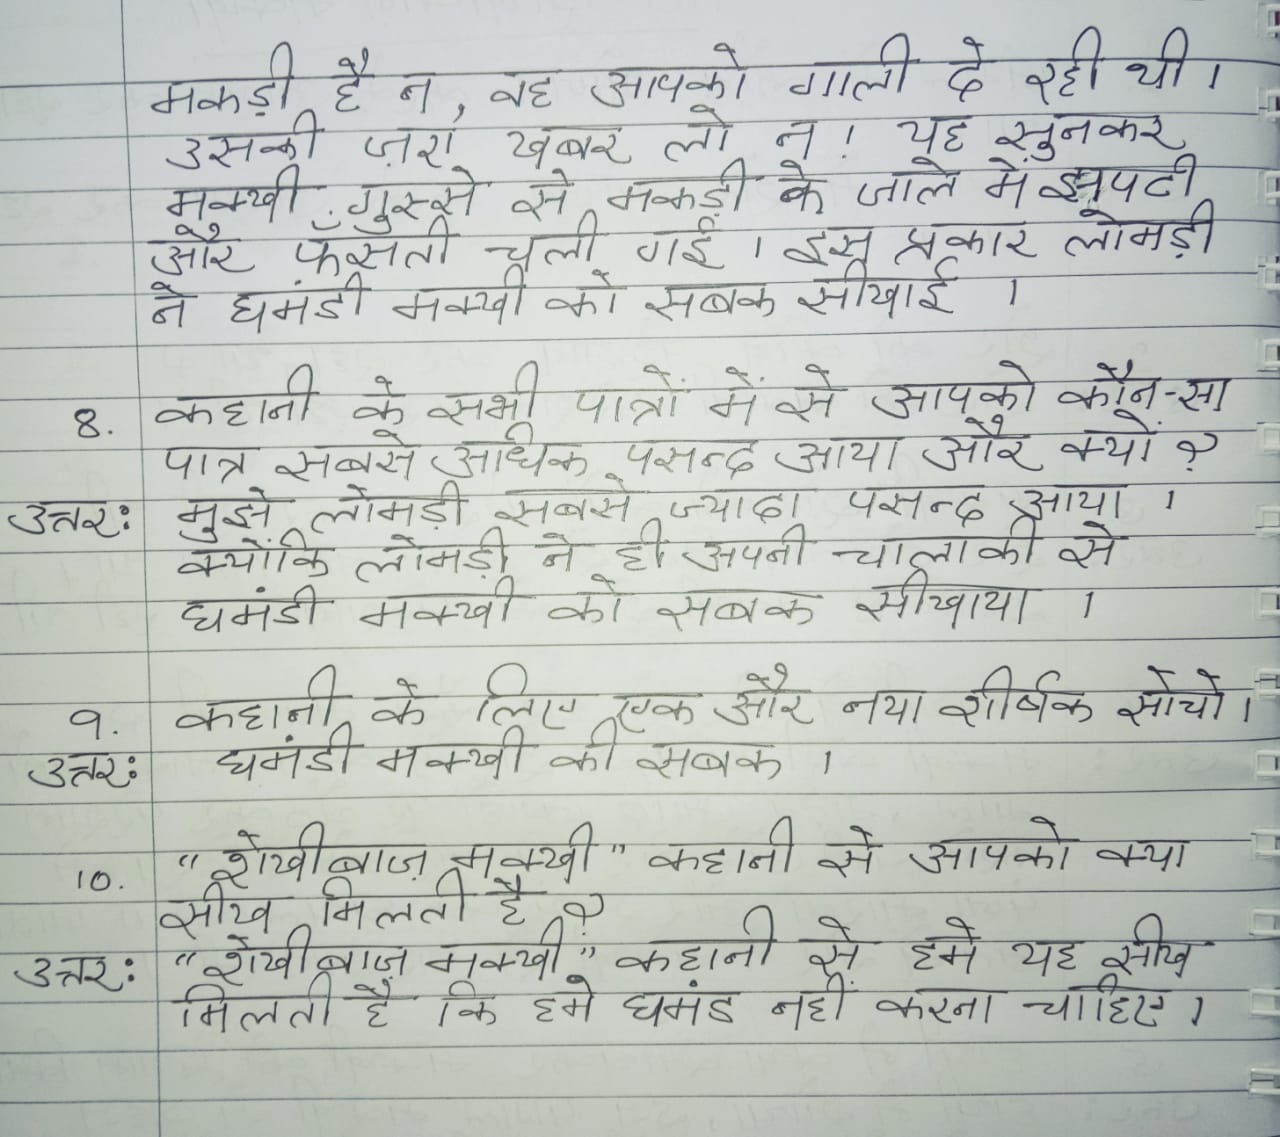 मकड़ी है न, वह आपको गाली दे रही थी।
उसकी ज़रा खबर लो न! यह सुनकर
मक्खी गुस्से से मकड़ी के जाले में झपटी
और फँसती चली गई। इस प्रकार लोमड़ी
ने घमंडी मक्खी को सबक सीखाई ।
8. कहानी के सभी पात्रों में से आपको कौन-सा
पात्र सबसे अधिक पसन्द आया और क्यों ?
उत्तर: मुझे लोमड़ी सबसे ज्यादा पसन्द आया ।
क्योंकि लोमड़ी ने ही अपनी चालाकी से
घमंडी मक्खी को सबक सीखाया ।
9. कहानी के लिए एक और नया शीर्षक सोचो।
उत्तर: घमंडी मक्खी की सबक ।
10. "शेखीबाज़ मक्खी" कहानी से आपको क्या
सीख मिलती है ?
उत्तर: "शेखीबाज़ मक्खी" कहानी से हमे यह सीख
मिलती है कि हमे घमंड नहीं करना चाहिए।